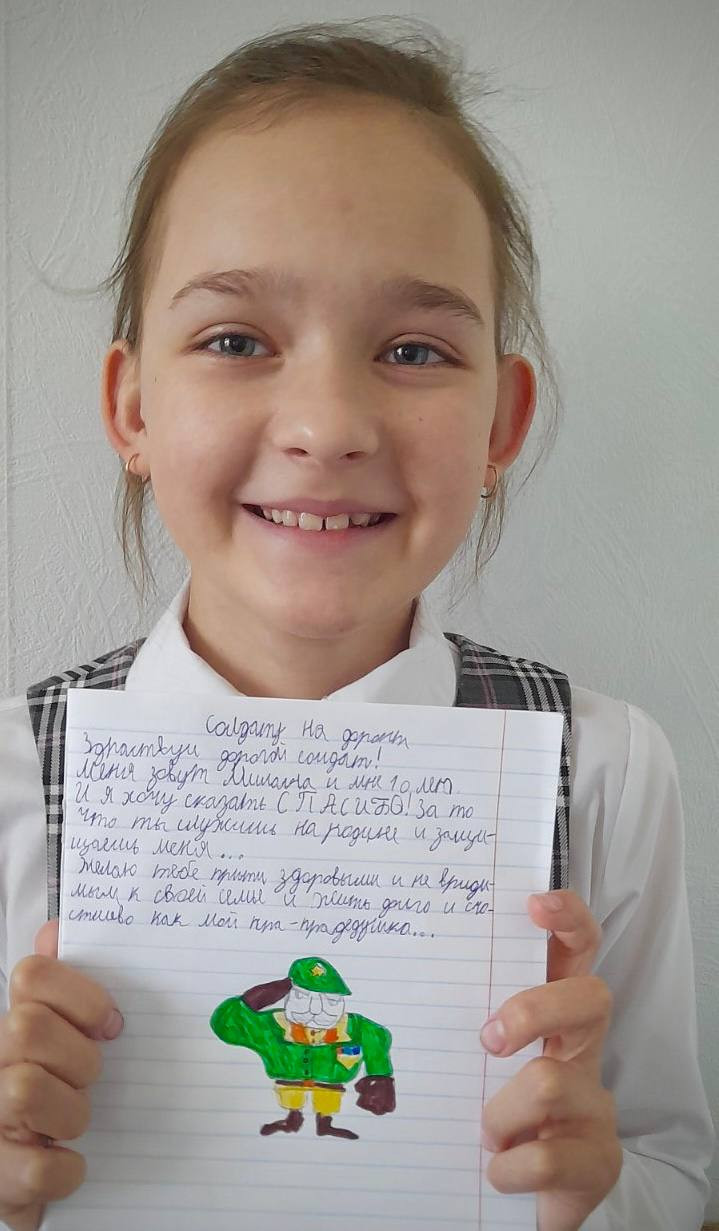 Солдату на доронт
Здраствуи дорогой солдат!
Меня зовут Милана и мне 10 лет.
И я хочу сказать СПАСИБО! За то
что ты служишь на родине и защи-
щаешь меня...
Желаю тебе прити здоровыми и не вриди-
мым к своей семье и жить долго и сча-
стливо как мой пра-прадедушка...